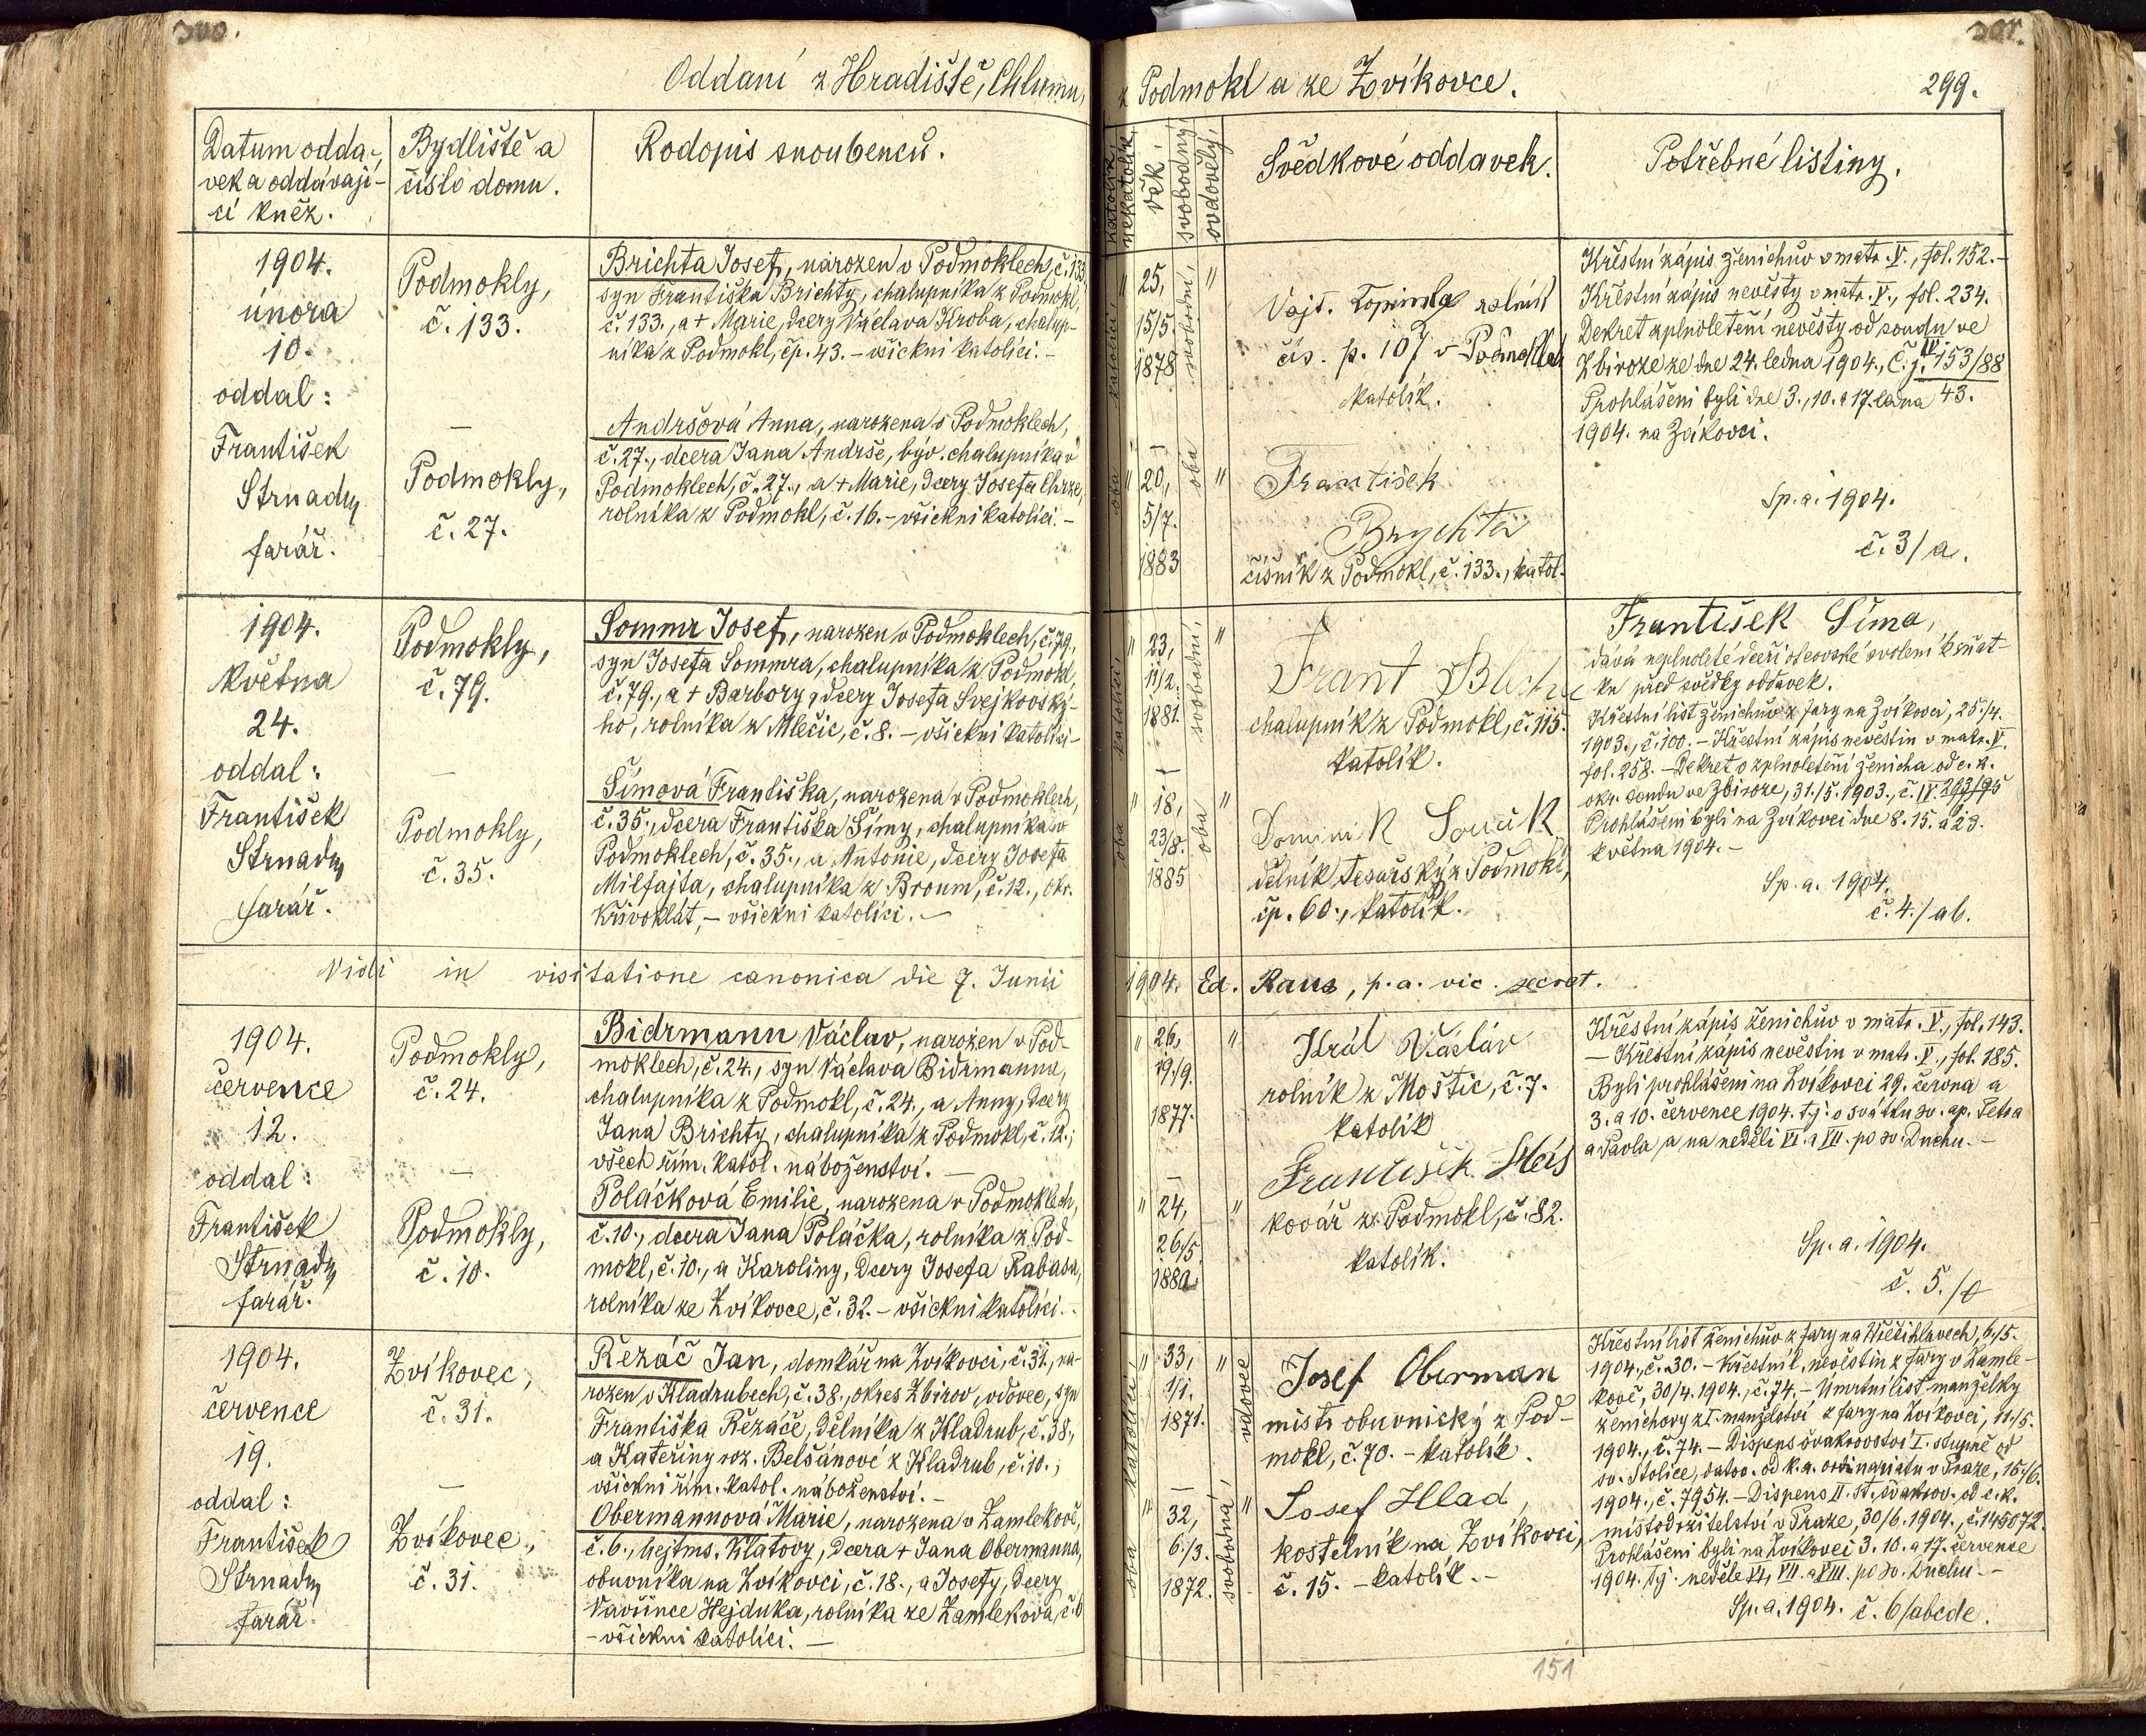 300.
301.
Oddaní z Hradiště, Chlumu,
z Podmokl a ze Zvíkovce.
299.
Datum odda-
vek a oddávají-
cí kněz.
Bydliště a
číslo domu.
Rodopis snoubenců.
katolík,
nekatolík,
věk,
svobodný,
ovdovělý,
Svědkové oddavek.
Potřebné listiny.
1904.
února
10.
oddal:
František
Strnady
farář.
Podmokly,
č. 133.
—
Podmokly,
č. 27.
Brichta Josef, narozen v Podmoklech, č. 133
syn Františka Brichty, chalupníka z Podmokl,
č. 133., a + Marie, dcery Václava Kroba, chalup-
níka z Podmokl, čp. 43. – všickni katolíci. –
Andršová Anna, narozena v Podmoklech,
č. 27., dcera Jana Andrše, býv. chalupníka v
Podmoklech, č. 27., a + Marie, dcery Josefa
rolníka z Podmokl, č. 16. – všickni katolíci. –
oba katolíci,
" 25,
15/5.
1878
—
" 20,
5/7.
1883
oba svobodní,
"
"
Vojt. Topinka rolník
čís. p. 107 v Podmoklech
katolík.
František
Brychta
číšník z Podmokl, č. 133., katol.
Křestní zápis ženichův v matr. V., fol. 152. –
Křestní zápis nevěsty v matr. V., fol. 234.
Dekret zplnoletění nevěsty od soudu ve
Zbiroze ze dne 24. ledna 1904., č. j. IV 153/88
43.
Prohlášeni byli dne 3., 10. a 17. ledna
1904. na Zvíkovci.
Sp. a. 1904.
č. 3/a.
1904.
května
24.
oddal:
František
Strnady
farář.
Podmokly,
č. 79.
—
Podmokly,
č. 35.
Sommr Josef, narozen v Podmoklech, č. 79.,
syn Josefa Sommra, chalupníka z Podmokl,
č. 79., a + Barbory, dcery Josefa Svejkovské-
ho, rolníka z Mlečic, č. 8. – všickni katolíci –
Šímová Františka, narozena v Podmoklech,
č. 35., dcera Františka Šímy, chalupníka v
Podmoklech, č. 35., a Antonie, dcery Josefa
Milfajta, chalupníka z Broum, č. 12., okr.
Křivoklát, – všickni katolíci. –
oba katolíci,
" 23,
11/2.
1881.
—
" 18,
23/8.
1885
oba svobodní,
"
"
Frant
chalupník z Podmokl, č. 115.
katolík.
Dominik Souček
dělník tesařský z Podmokl,
čp. 60., katolík.
František Šíma,
dává neplnoleté dceři otcovské svolení k sňat-
ku před svědky oddavek.
Křestní list ženichův z fary na Zvíkovci, 25./4.
1903., č. 100. – Křestní zápis nevěstin v matr. V.
fol. 258. – Dekret o zplnoletění ženicha od c. k.
okr. soudu ve Zbiroze, 31./5. 1903., č. IV. 293/95
Prohlášeni byli na Zvíkovci dne 8. 15. a 23.
května 1904. –
Sp. a. 1904.
č. 4./ab.
Vidi in visitatione canonica die 7. Junii 1904. Ed. Raus, p. a. vic. secret.
1904.
července
12.
oddal:
František
Strnady
farář.
Podmokly,
č. 24.
—
Podmokly,
č. 10.
Bidrmann Václav, narozen v Pod-
moklech, č. 24., syn Václava Bidrmanna,
chalupníka z Podmokl, č. 24., a Anny, dcery
Jana Brichty, chalupníka z Podmokl, č. 12.;
všech řím. katol. náboženství. –
Poláčková Emilie, narozena v Podmoklech,
č. 10., dcera Jana Poláčka, rolníka z Pod-
mokl, č. 10., a Karoliny, dcery Josefa Rabasa,
rolníka ze Zvíkovce, č. 32. – všickni katolíci. –
" 26,
19./9.
1877.
—
" 24,
26/5.
1880
"
"
Král Václav
rolník z Moštic, č. 7.
katolík
František
kovář z Podmokl, č. 82.
katolík.
Křestní zápis ženichův v matr. V., fol. 143.
— Křestní zápis nevěstin v matr. V., fol. 185.
Byli prohlášeni na Zvíkovci 29. června a
3. a 10. července 1904. tj. o svátku sv. ap. Petra
a Pavla, a na neděli VI. a VII. po sv. Duchu. –
Sp. a. 1904.
č. 5./
1904.
července
19.
oddal:
František
Strnady
farář.
Zvíkovec,
č. 31.
—
Zvíkovec,
č. 31.
Řezáč Jan, domkář na Zvíkovci, č. 31., na-
rozen v Kladrubech, č. 38., okres Zbirov, vdovec, syn
Františka Řezáče, dělníka z Kladrub, č. 38.,
a Kateřiny roz. Belšánové z Kladrub, č. 10.;
všickni řím. katol. náboženství. –
Obermannová Marie, narozena v Zamlekově,
č. 6., hejtms. Klatovy, dcera + Jana Obermanna,
obuvníka na Zvíkovci, č. 18., a Josefy, dcery
Vavřince Hejduka, rolníka ze Zamlekova, č. 6
– všickni katolíci. –
oba katolíci,
" 33,
1/1.
1871.
—
" 32,
6./3.
1872.
vdovec
svobodná,
"
"
Josef Oberman
mistr obuvnický z Pod-
mokl, č. 70. – katolík.
Josef Hlad,
kostelník na Zvíkovci,
č. 15. – katolík. –
Křestní list ženichův z fary na Všešihlavech, 6./5.
1904., č. 30. – Křestní l. nevěstin z fary v Zamle-
kově, 30/4. 1904., č. 74. – Úmrtní list manželky
ženichovy z I. manželství z fary na Zvíkovci, 11./5.
1904., č. 74. – Dispens švakrovství I. stupně od
sv. Stolice, datov. od k. a. ordinariatu v Praze, 15./6.
1904., č. 7954. – Dispens II. st. švakrov. od c. k.
místodržitelství v Praze, 30/6. 1904., č. 145072.
Prohlášeni byli na Zvíkovci 3. 10. a 17. července
1904. tj. neděle VI., VII. a VIII. po sv. Duchu. –
Sp. a. 1904. č. 6/abcde.
151